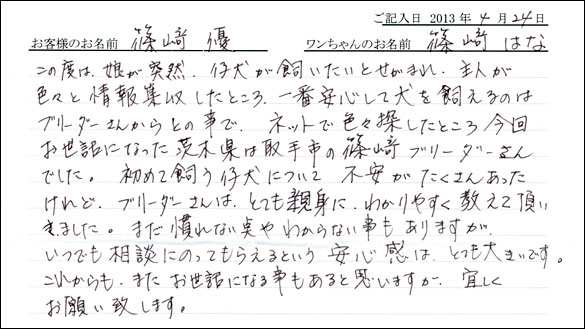 ご記入日 2013 年 4 月 24 日
お客様のお名前 篠﨑 優 ワンちゃんのお名前 篠﨑 はな
この度は、娘が突然、仔犬が飼いたいとせがまれ、主人が
色々と情報集収したところ、一番安心して犬を飼えるのは
ブリーダーさんからとの事で、ネットで色々探したところ今回
お世話になった茨木県は取手市の篠﨑ブリーダーさん
でした。初めて飼う仔犬について不安がたくさんあった
けれど、ブリーダーさんは、とても親身に、わかりやすく教えて頂い
きました。まだ慣れない点やわからない事もありますが、
いつでも相談にのってもらえるという安心感は、とても大きいです。
これからも、またお世話になる事もあると思いますが、宜しく
お願い致します。